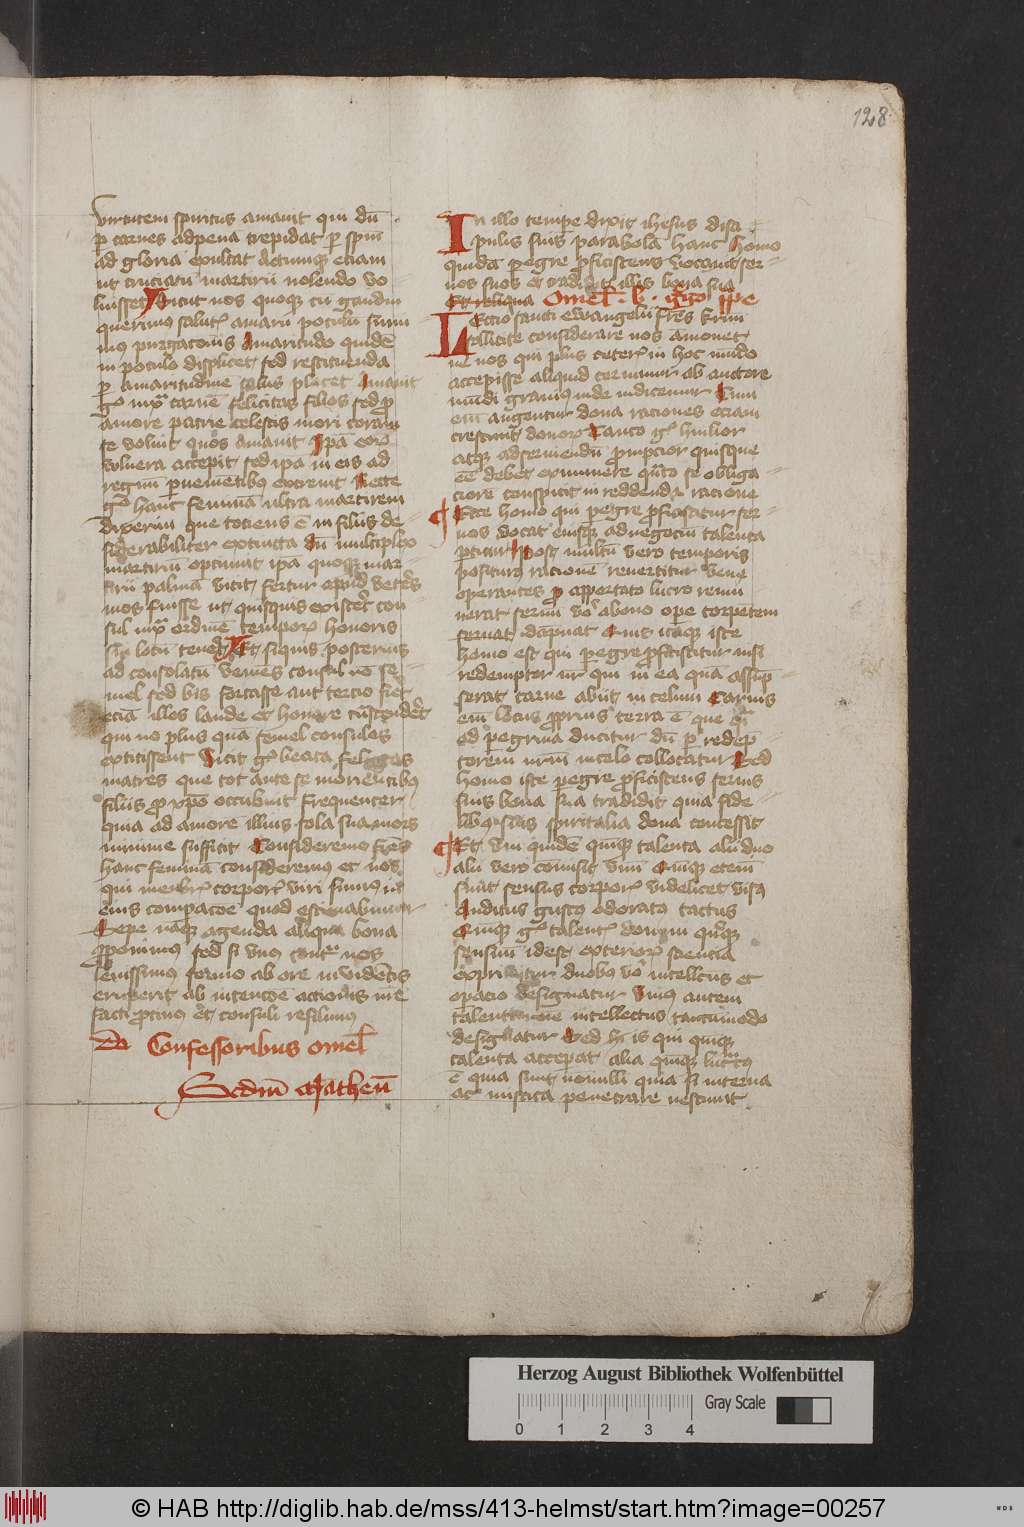 128
virtutem spiritus amauit qui dū
ꝑ carnes ad penā trepidat ꝑ spm̄
ad gloriā exultat Actumqꝫ etiam
ut cruciatū martirii nolendo vo
luisset Dicit nos quoqꝫ cū gaudio
querimꝰ salutꝭ amarū potulū sumi
mꝰ purgatoriis Amaritudo quidē
in potulo displicet sed restituenda
ꝑ amaritudinē salus placet Amauit
gͦ iuxͣ carnē felicitas filios sed ꝓ
amore patrie celestis mori coram
se voluit quos amauit Ipā eoꝝ
vulnera accepit sed ipa in eis ad
regnū ꝑuenientibꝰ excreuit Recte
gͦ hanc feminā ultra martirem
dixerim que tociens ē in filiis de
siderabiliter extincta dū multiplex
martiriū optinuit ipā quoqꝫ mar
tirii palmā vicit fertur apud veteres
mos fuisse ut quisquis existeret con
sul iuxͣ ordinē temporꝝ honoris
sui locū teneret Et siquis posterius
ad consolatū veniēs consul nō se
mel sed bis fortasse aut tercio fiet
eciā illos laude et honore trāscenderet
qui nō plus quā semel consules
extitissent Vicit gͦ beata felicitas
matres que tot ante se morientibꝰ
filiis ꝓ xpō occubuit Frequenter
quia ad amorē illius sola sua mors
minime sufficit Consideremꝰ frēs
hanc feminā consideremus et nos
qui membrꝭ corporꝭ viri sumꝰ in
eius compacōe quod estimabimur
Sepe nāqꝫ agenda aliqua bona
ꝓponimꝰ sed si vnꝰ contrͣ nos
leuissimꝰ sermo ab ore irridētis
eruperit ab intencōe actionis nr̄e
fracti ꝓtinꝰ et confusi resilimꝰ
De Confessoribus omel
Scdm̄ Matheū
In illo tempe dixit ihesus disci
pulis suis parabolā hanc Homo
quidā ꝑegre ꝓficiscens vocauit ser
uos suos et tradidit illis bona sua
Et reliqua Omelꝭ b. Grͤgo ppe
Lectio sancti ewangelii frēs krmi
sollicite considerare nos amonet
ne nos qui plus ceterꝭ in hoc mūdo
accepisse aliquid cernimur ab auctore
mūdi grauiꝰ inde iudicemur Cum
enī augentur dona raciones eciam
crescunt donorꝝ Tanto gͦ humilior
atqꝫ ad seruiendū ꝓmpcior quisque
eē debet ex munere quāto se obliga
ciore conspicit in reddenda racione
Ecce homo qui ꝑegre ꝓficiscitur ser
uos vocat eisqꝫ ad negociū talenta
ꝑtitur Post multū vero temporis
positurꝰ racionē reuertitur bene
operantes ꝓ apportato lucro remu
nerat seruū vͦ abono opere torpentem
seruat dāpnat Quis itaqꝫ iste
homo est qui ꝑegre ꝓficiscitur nisi
redemptor nr̄ qui in ea quā assūp
serat carne abiit in celum Carnis
enī locus ꝓprius terra ē que qͣsi
ad ꝑegrina ducitur dū ꝑ redēp
torem nr̄m in celo collocatur Sed
homo iste ꝑegre ꝓficiscens seruis
suis bona sua tradidit quia fide
libꝰ suis spiritalia dona concessit
Et vni quidē quinqꝫ talenta alii duo
alii vero cōmisit vnū Quinqꝫ etenī
sunt sensus corporꝭ videlicet visꝰ
Auditus gustꝰ odoratꝰ tactus
Quinqꝫ gͦ talentꝭ donum quinqꝫ
sensuū idest exteriorꝝ sciencia
exprimitur duobus vͦ intellectus et
operacio designatur Vnius autem
talenti nomine intellectus tantūmodo
designatur Sed hic is qui quinqꝫ
talenta acceperat alia quinqꝫ lucratꝰ
ē quia sunt nōnulli quia si interna
ac mistica penetrare nesciunt
Herzog August Bibliothek Wolfenbüttel
Gray Scale
0 1 2 3 4
© HAB http://diglib.hab.de/mss/413-helmst/start.htm?image=00257